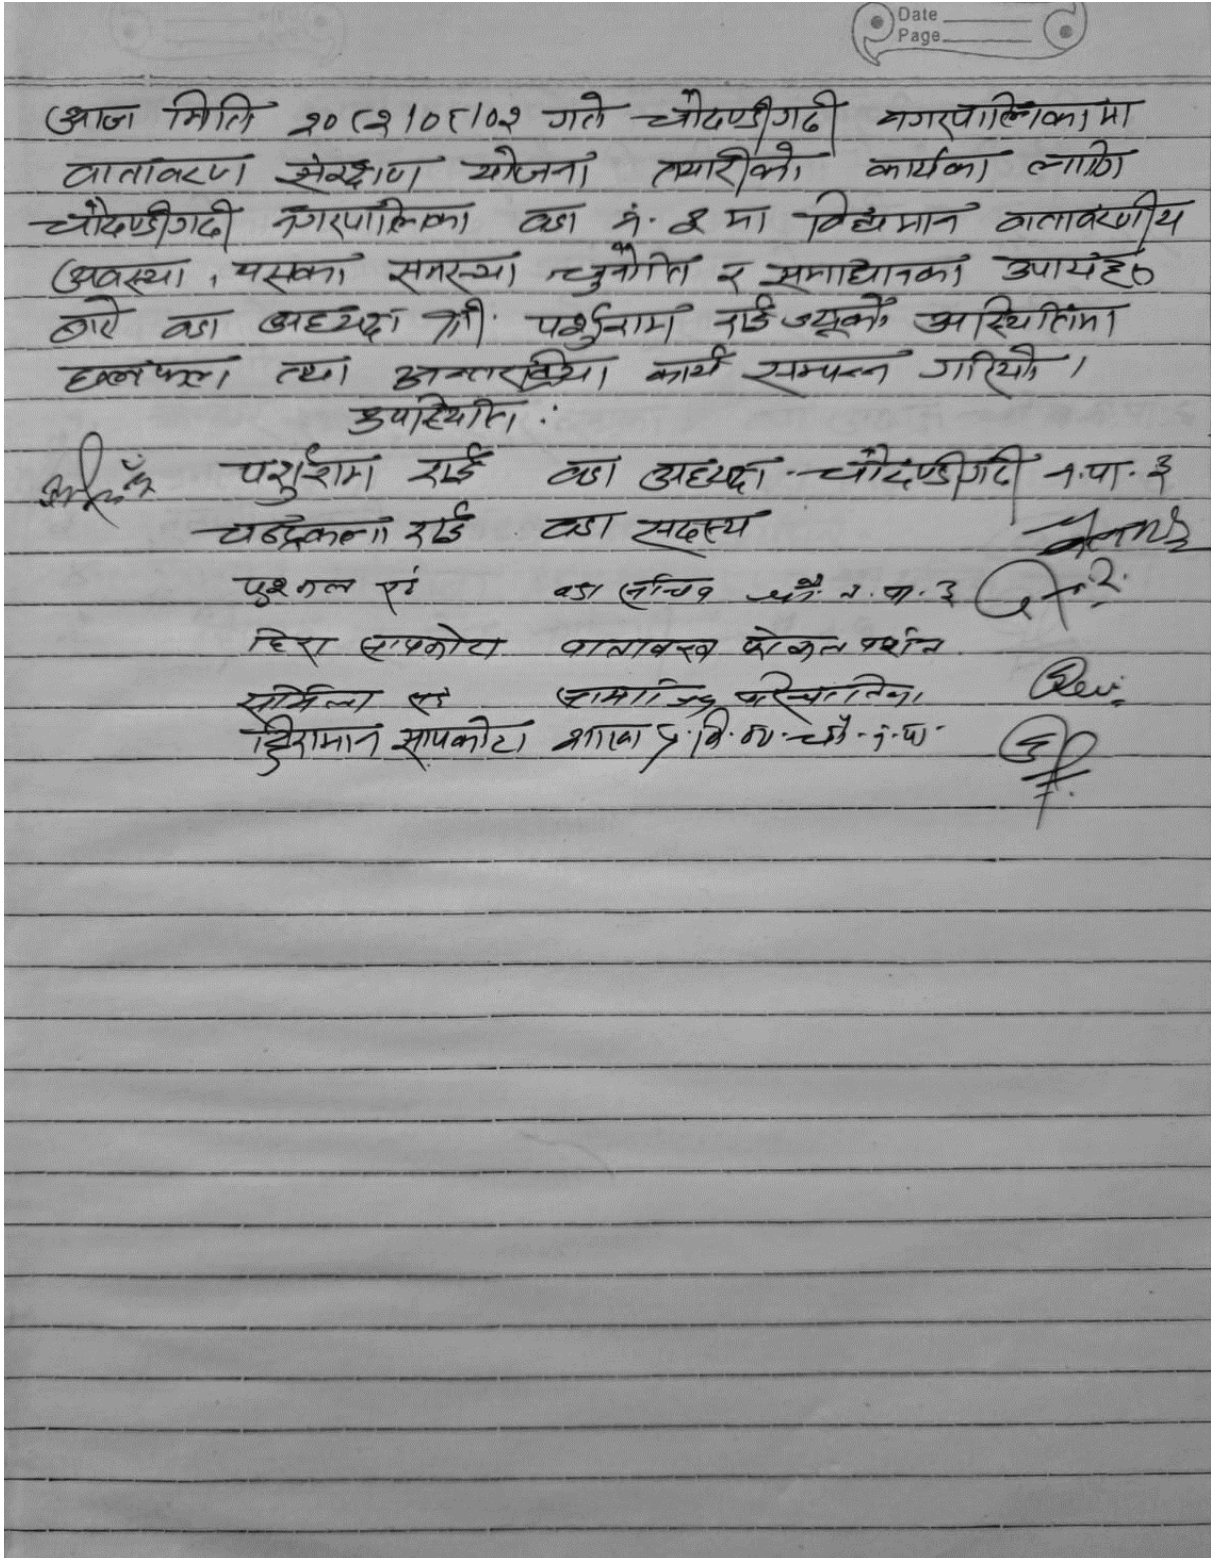 Date
Page
आज मिति २०८२।०८।०२ गते चौदण्डीगढी नगरपालिकामा
वातावरण संरक्षण योजना तयारीको कार्यका लागि
चौदण्डीगढी नगरपालिका वडा नं. ३ मा विद्यमान वातावरणीय
अवस्था, यसका समस्या चुनौति र समाधानका उपायहरु
बारे वडा अध्यक्ष श्री पर्शुराम राई ज्यूको उपस्थितिमा
छलफल तथा अन्तरक्रिया कार्य सम्पन्न गरियो।
उपस्थिति :
पर्शुराम राई वडा अध्यक्ष चौदण्डीगढी न.पा. ३
चन्द्रकला राई वडा सदस्य
वडा सचिव चौ. न. पा. ३
हिरा सापकोटा वातावरण
सर्मिला राई
हिरामान सापकोटा शाखा चौ. न. पा.